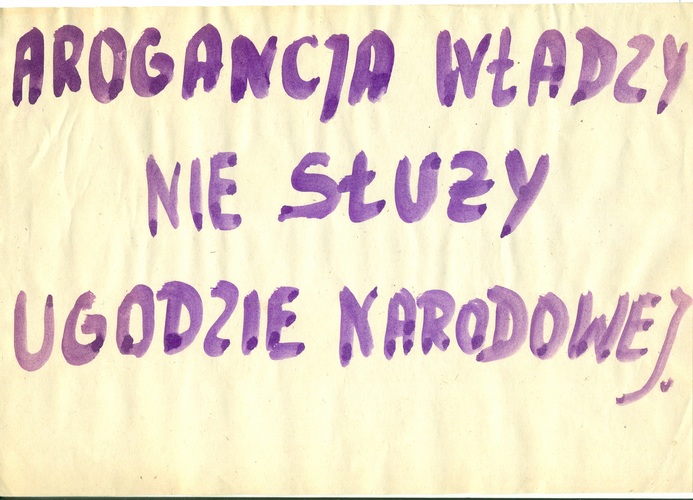 AROGANCJA WŁADZY
NIE SŁUŻY
UGODZIE NARODOWEJ